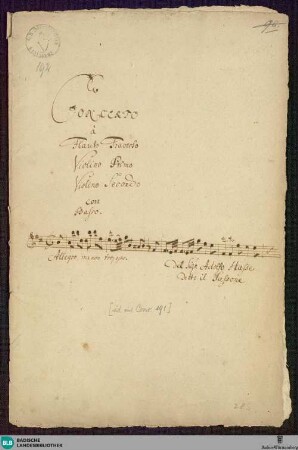 194
CONCERTO
à
Flauto Traverso
Violino Primo
Violino Secondo
con
Basso.
Allegro, ma non troppo.
Del Sigr. Adolfo Hasse
detto il Sassone
BLB BADISCHE
LANDESBIBLIOTHEK
Baden-Württemberg